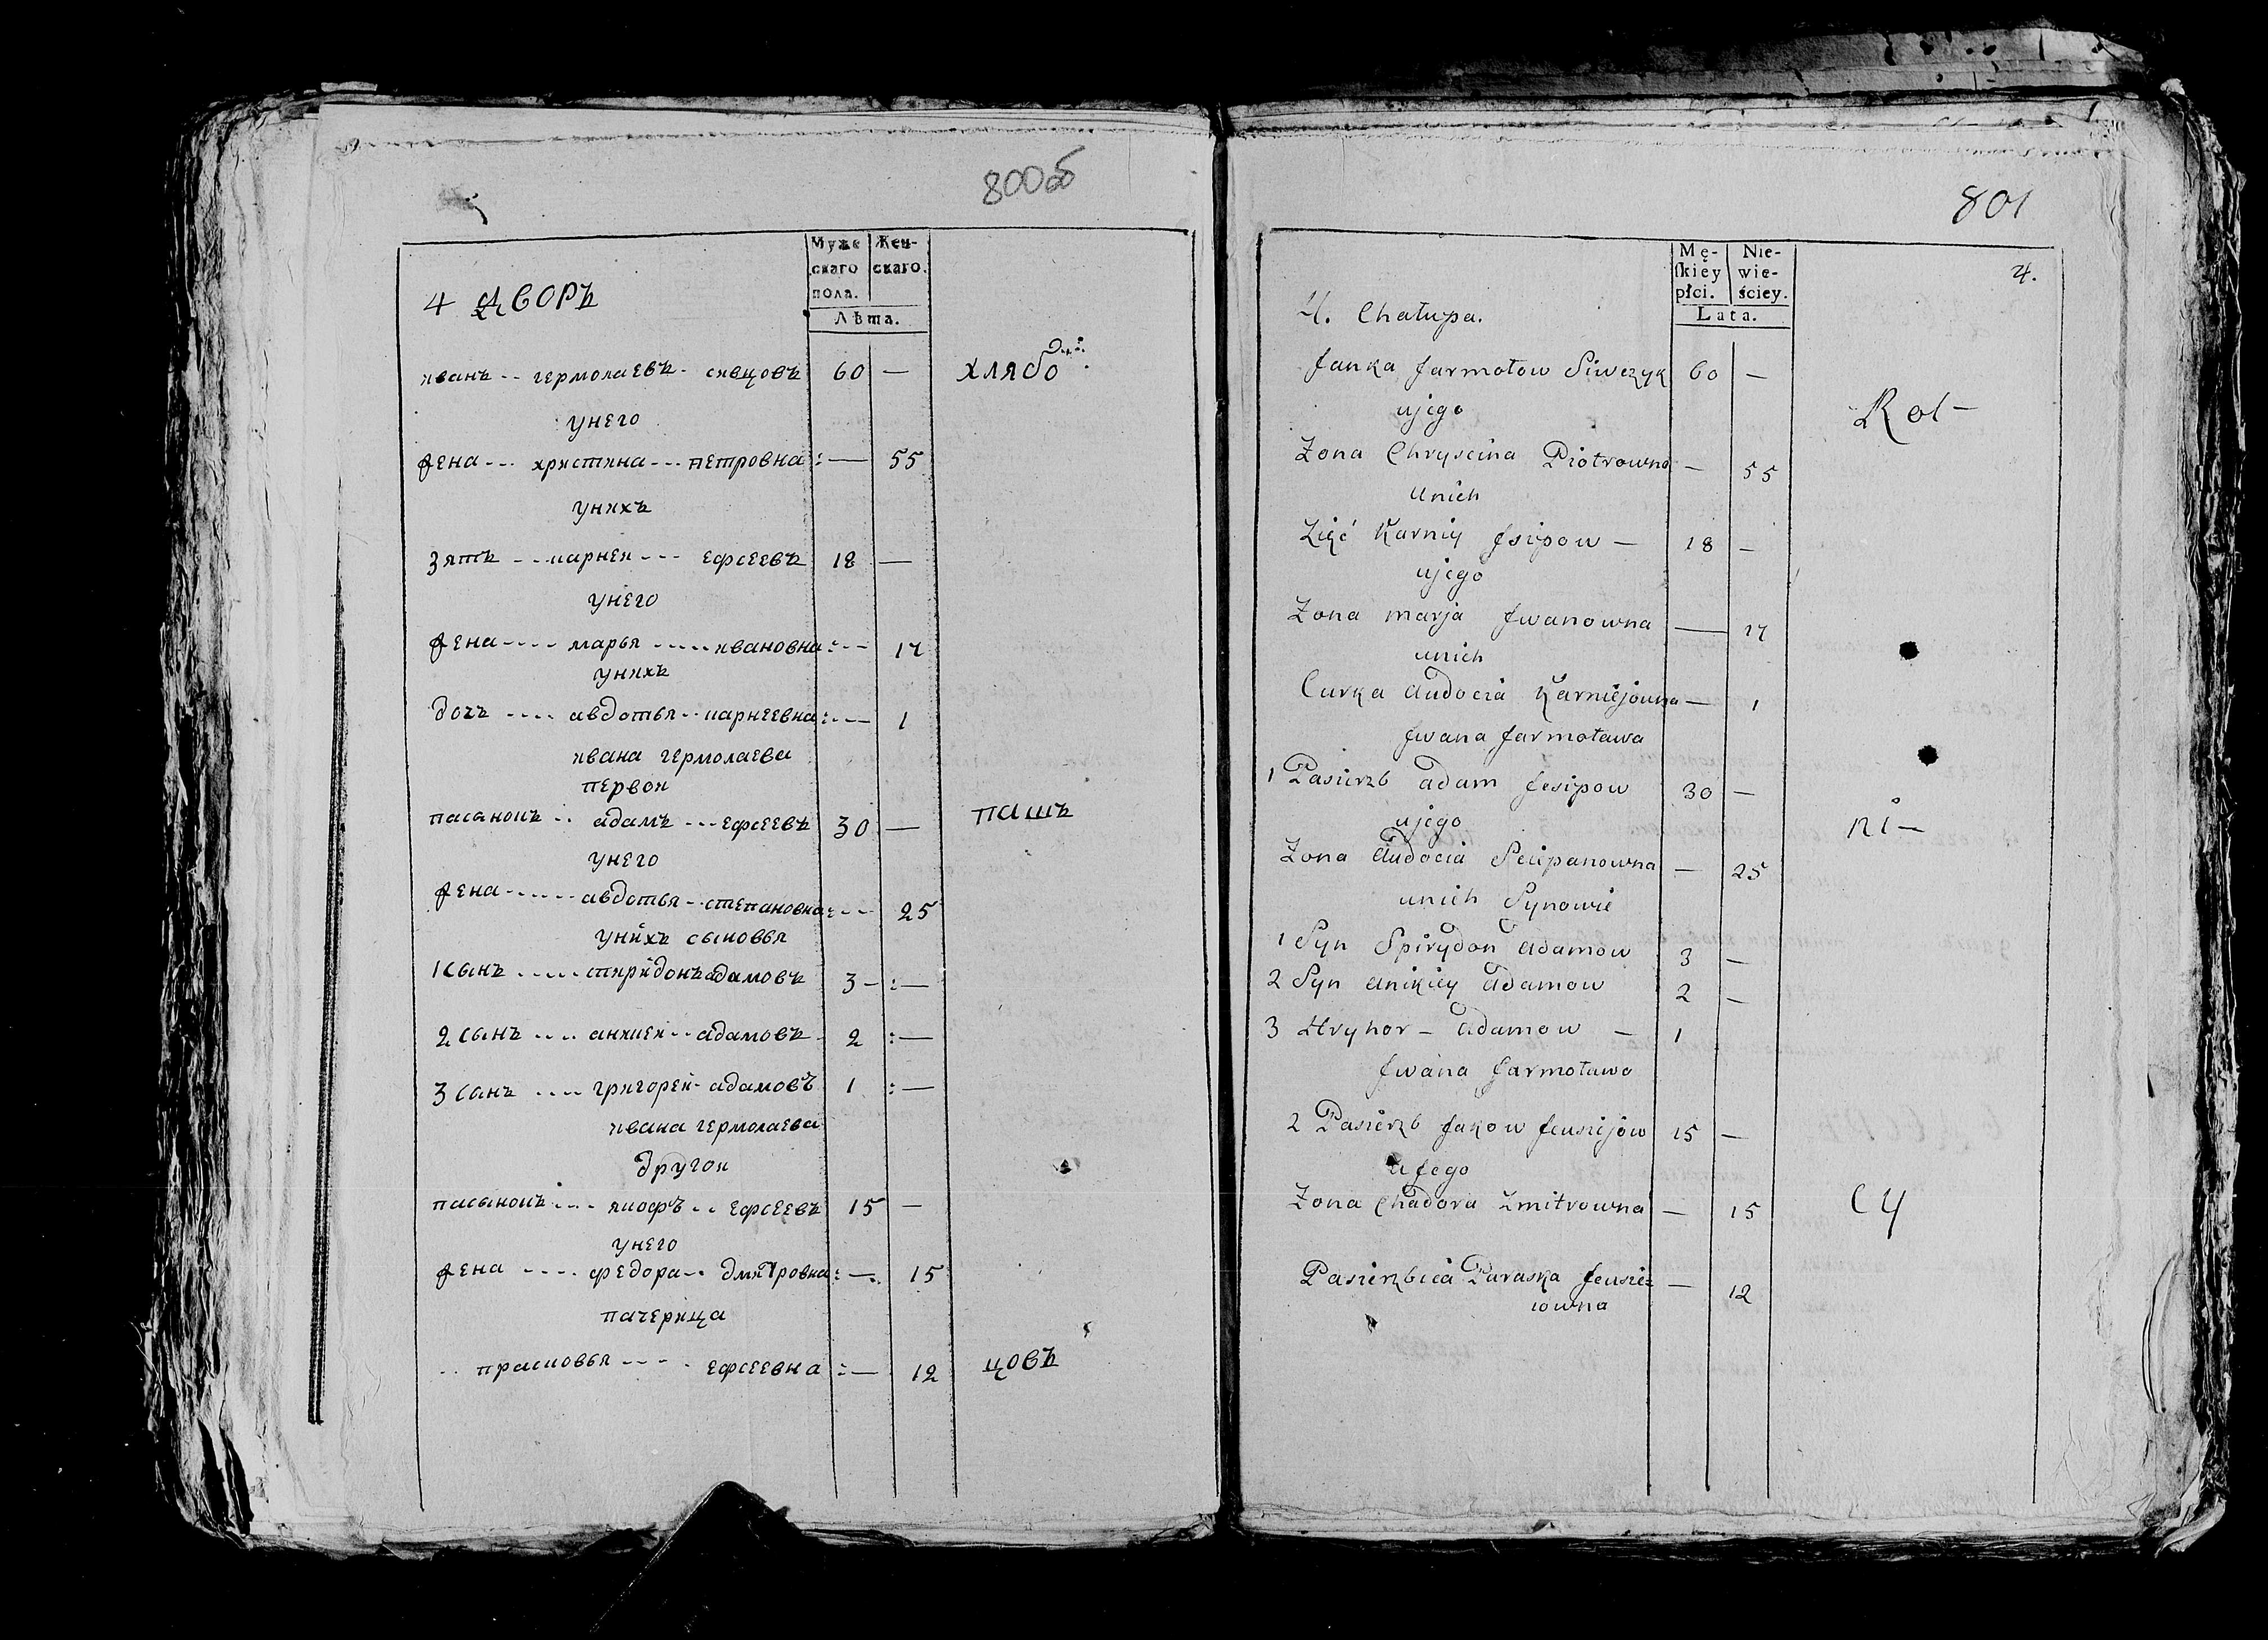 800об
Муже Жен-
скаго скаго.
пола.
Лѣта.
4 дворъ
иванъ -- гермолаевъ - сивцовъ 60 — хлябо
унего
жена --- християна --- петровна :— 55
унихъ
зять --- карнеи --- ефсеевъ 18 —
унего
жена ---- марья ----- ивановна :-- 17
унихъ
дочъ ---- авдотья -- карнеевна :-- 1
ивана гермолаева
первои
пасанокъ -- адамъ --- ефсеевъ 30 — пашъ
унего
жена ------ авдотья -- степановна :-- 25
унихъ сыновья
1 сынъ ----- спиридонъ адамовъ 3 - :—
2 сынъ ---- аникеи -- адамовъ 2 :—
3 санъ ---- григореи - адамовъ 1 :—
ивана гермолаева
другои
пасынокъ --- якофъ -- ефсеевъ 15 —
унего
жена ---- федора -- дмитровна :— 15
пачерица
-- прасковья --- - ефсеевна :— 12 цовъ
801
Mę- Nie-
ſkiey wie-
płci. ściey.
Lata.
4.
4. Chałupa.
Janka Jarmołow Siwczyk 60 —
Rol —
ujego
Zona Chryscina Piotrowna — 55
unich
Zięć Karniy Jsipow — 18 —
ujego
Zona marja Jwanowna — 17
unich
Curka Audocia Karniejowna — 1
Jwana Jarmoława
1 Pasierzb adam Jesipow 30 —
ujego
ni —
Zona Audocia Sciepanowna — 25
unich Synowie
1 Syn Spirydon Adamow 3 —
2 Syn Anikiey Adamow 2 —
3 Hryhor — Adamow — 1
Jwana Jarmoława
2 Pasierzb Jakow Jeusiejow 15 —
ujego
Zona Chadora Zmitrowna — 15 cy
Pasierzbica Paraska Jeusie= — 12
iowna